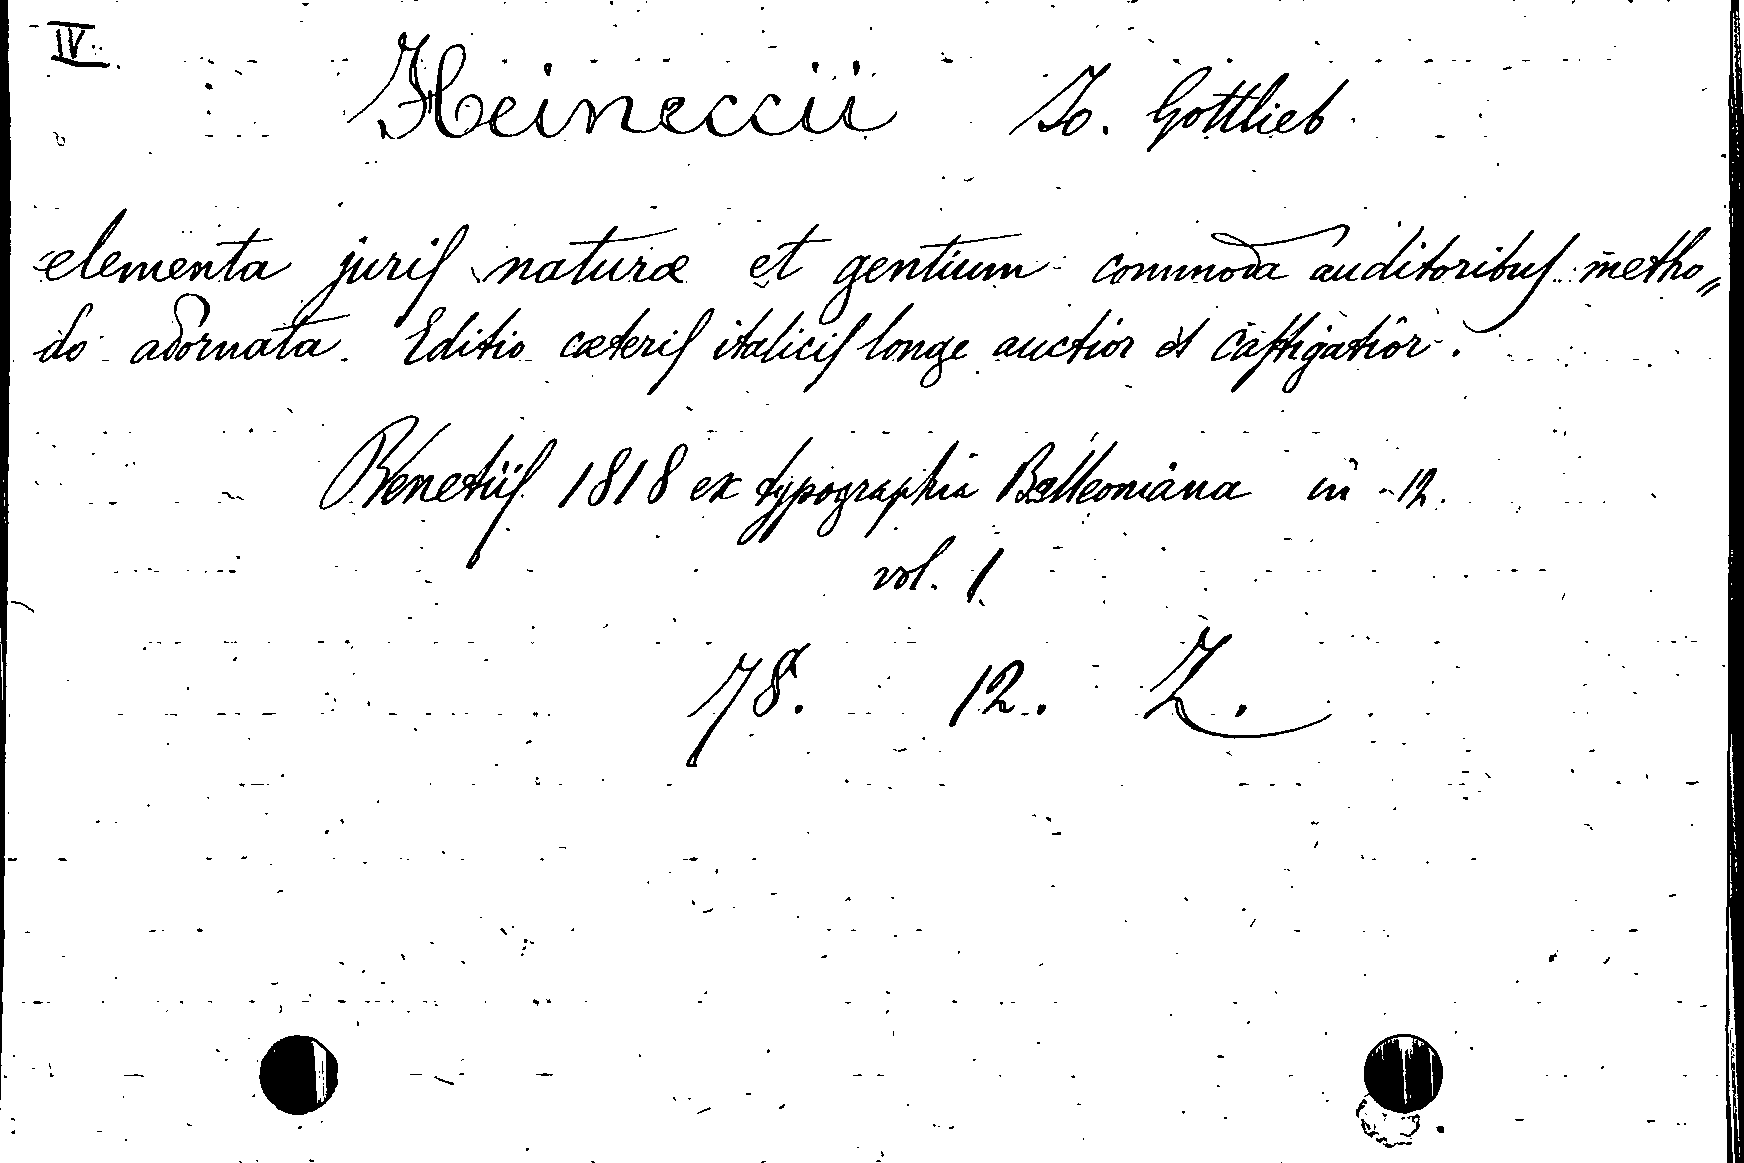 IV.
Heineccii Jo. Gottlieb
elementa juris naturæ et gentium commoda auditoribus metho„
do adornata. Editio cæteris italicis longe auctior et castigatior.
Venetiis 1818 ex typographia Balleoniana in 12.
vol. 1.
78. 12. Z.